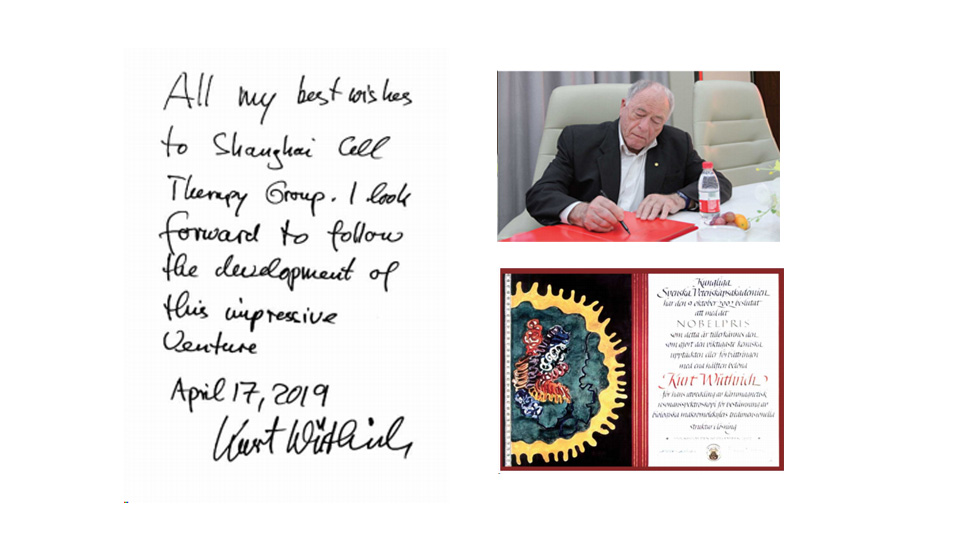 All my best wishes
to Shanghai Cell
Therapy Group. I look
forward to follow
the development of
this impressive
Venture
April 17, 2019
Kurt Wüthrich
Kungliga
Svenska Vetenskapsakademien
har den 9 oktober 2002 beslutat
att med det
NOBELPRIS
som detta år tillerkännes den
som gjort den viktigaste kemiska
upptäckten eller förbättringen
med ena hälften belöna
Kurt Wüthrich
för hans utveckling av kärnmagnetisk
resonansspektroskopi för bestämning av
biologiska makromolekylers tredimensionella
struktur i lösning